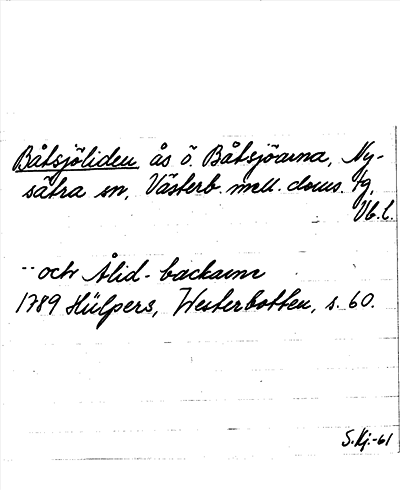 Båtsjöliden ås ö. Båtsjöarna, Ny-
sätra sn, Västerb. mell. doms. tg,
Vb. l.
-- och Ålid-backarne
1789 Hülpers, Westerbotten, s. 60.
S. Kj.-61